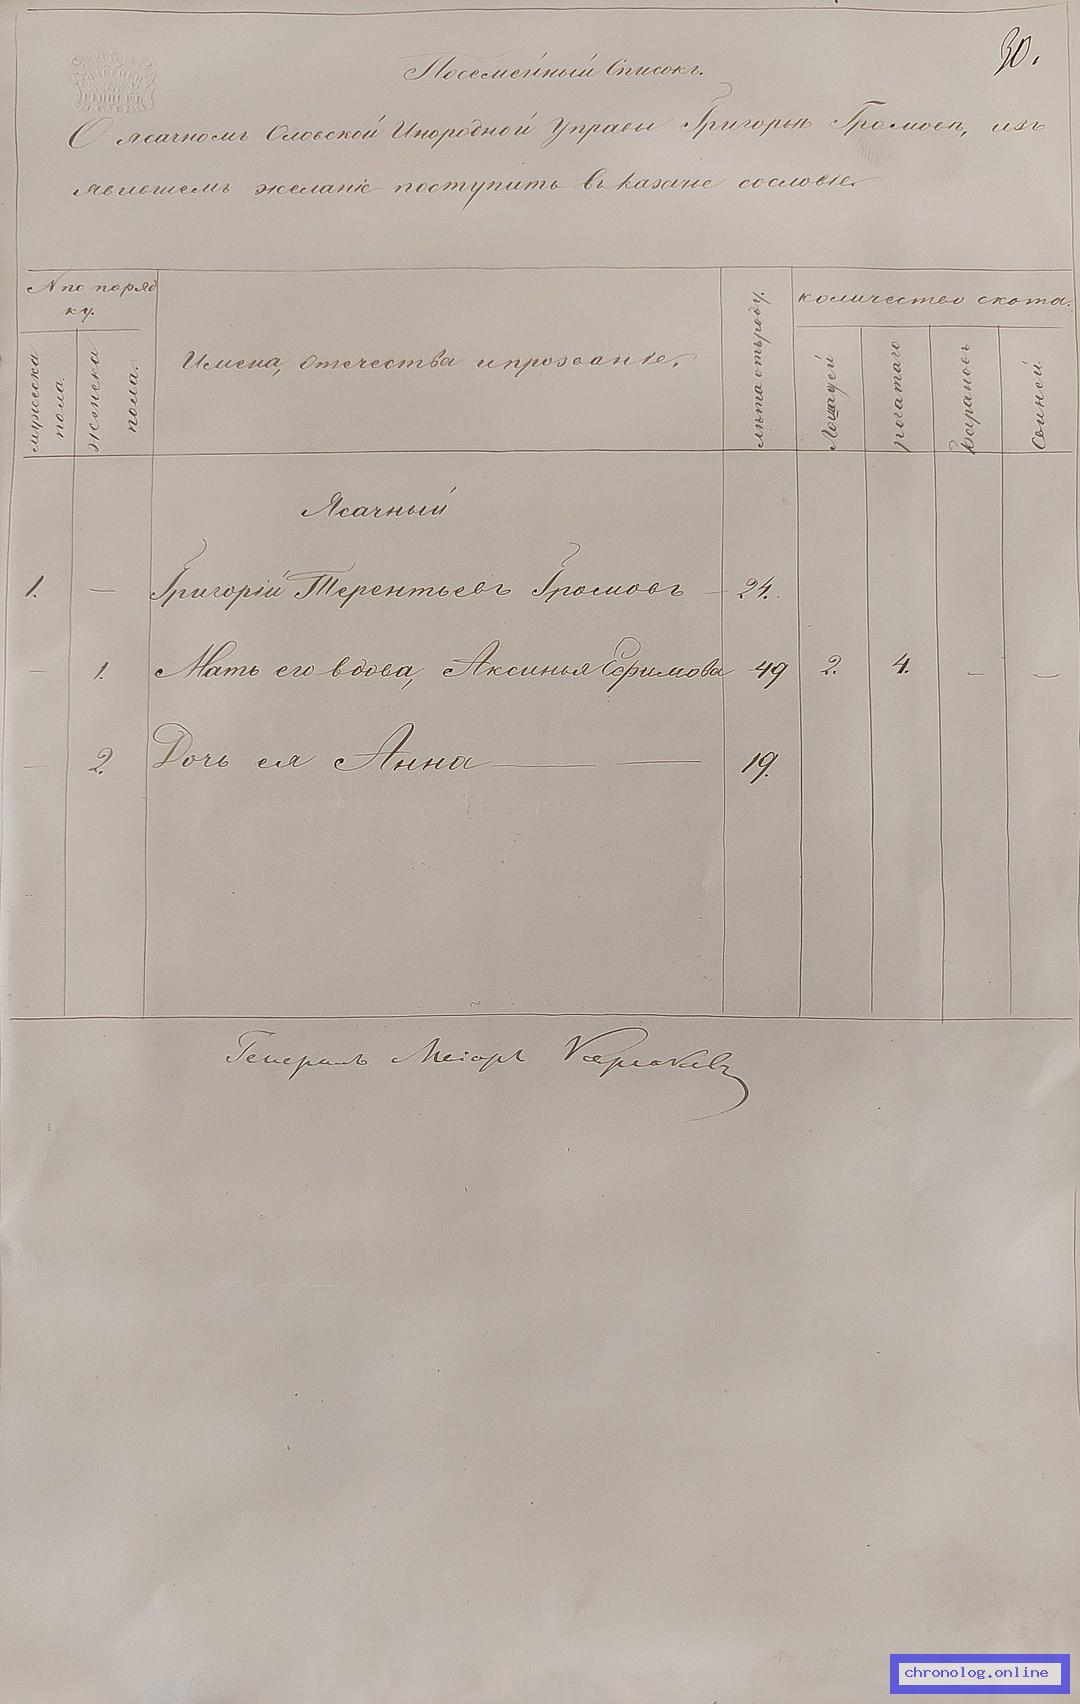 30.
Посемейный Списокъ.
О ясачномъ Оловской Инородной Управы Григорьѣ Громовѣ, изъ
явившемъ желаніе поступить въ казачье сословіе.
№ по поряд
ку.
мужеска
пола.
женска
пола.
Имена, отечества и прозваніе.
лѣта отъ роду.
количество скота.
Лошадей
рогатаго
барановъ
Свиней
Ясачный
1. — Григорій Терентьевъ Громовъ — 24.
— 1. Мать его вдова, Аксинья Ефимова 49 2. 4. — —
— 2. Дочь ея Анна — — 19.
Генералъ Маіоръ
chronolog.online